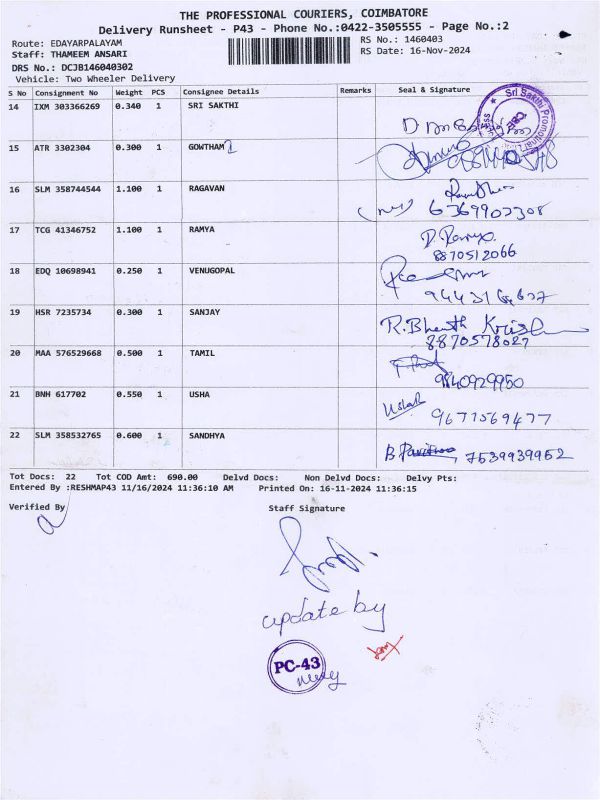 THE PROFESSIONAL COURIERS, COIMBATORE
Delivery Runsheet - P43 - Phone No.:0422-3505555 - Page No.:2
Route: EDAYARPALAYAM
RS No.: 1460403
Staff: THAMEEM ANSARI
RS Date: 16-Nov-2024
DRS No.: DCJB146040302
Vehicle: Two Wheeler Delivery
S No Consignment No Weight PCS Consignee Details Remarks Seal & Signature
14 IXM 303366269 0.340 1 SRI SAKTHI
Sri Sakthi Promotional
15 ATR 3302304 0.300 1 GOWTHAM
16 SLM 358744544 1.100 1 RAGAVAN
6369902308
17 TCG 41346752 1.100 1 RAMYA
D. Ramya.
8870512066
18 EDQ 10698941 0.250 1 VENUGOPAL
19 HSR 7235734 0.300 1 SANJAY
R. Bharath Krishn
8870578027
20 MAA 576529668 0.500 1 TAMIL
9840929950
21 BNH 617702 0.550 1 USHA
Ushak
9677569477
22 SLM 358532765 0.600 1 SANDHYA
7539939952
Tot Docs: 22 Tot COD Amt: 690.00 Delvd Docs: Non Delvd Docs: Delvy Pts:
Entered By :RESHMAP43 11/16/2024 11:36:10 AM Printed On: 16-11-2024 11:36:15
Verified By Staff Signature
update by
PC-43